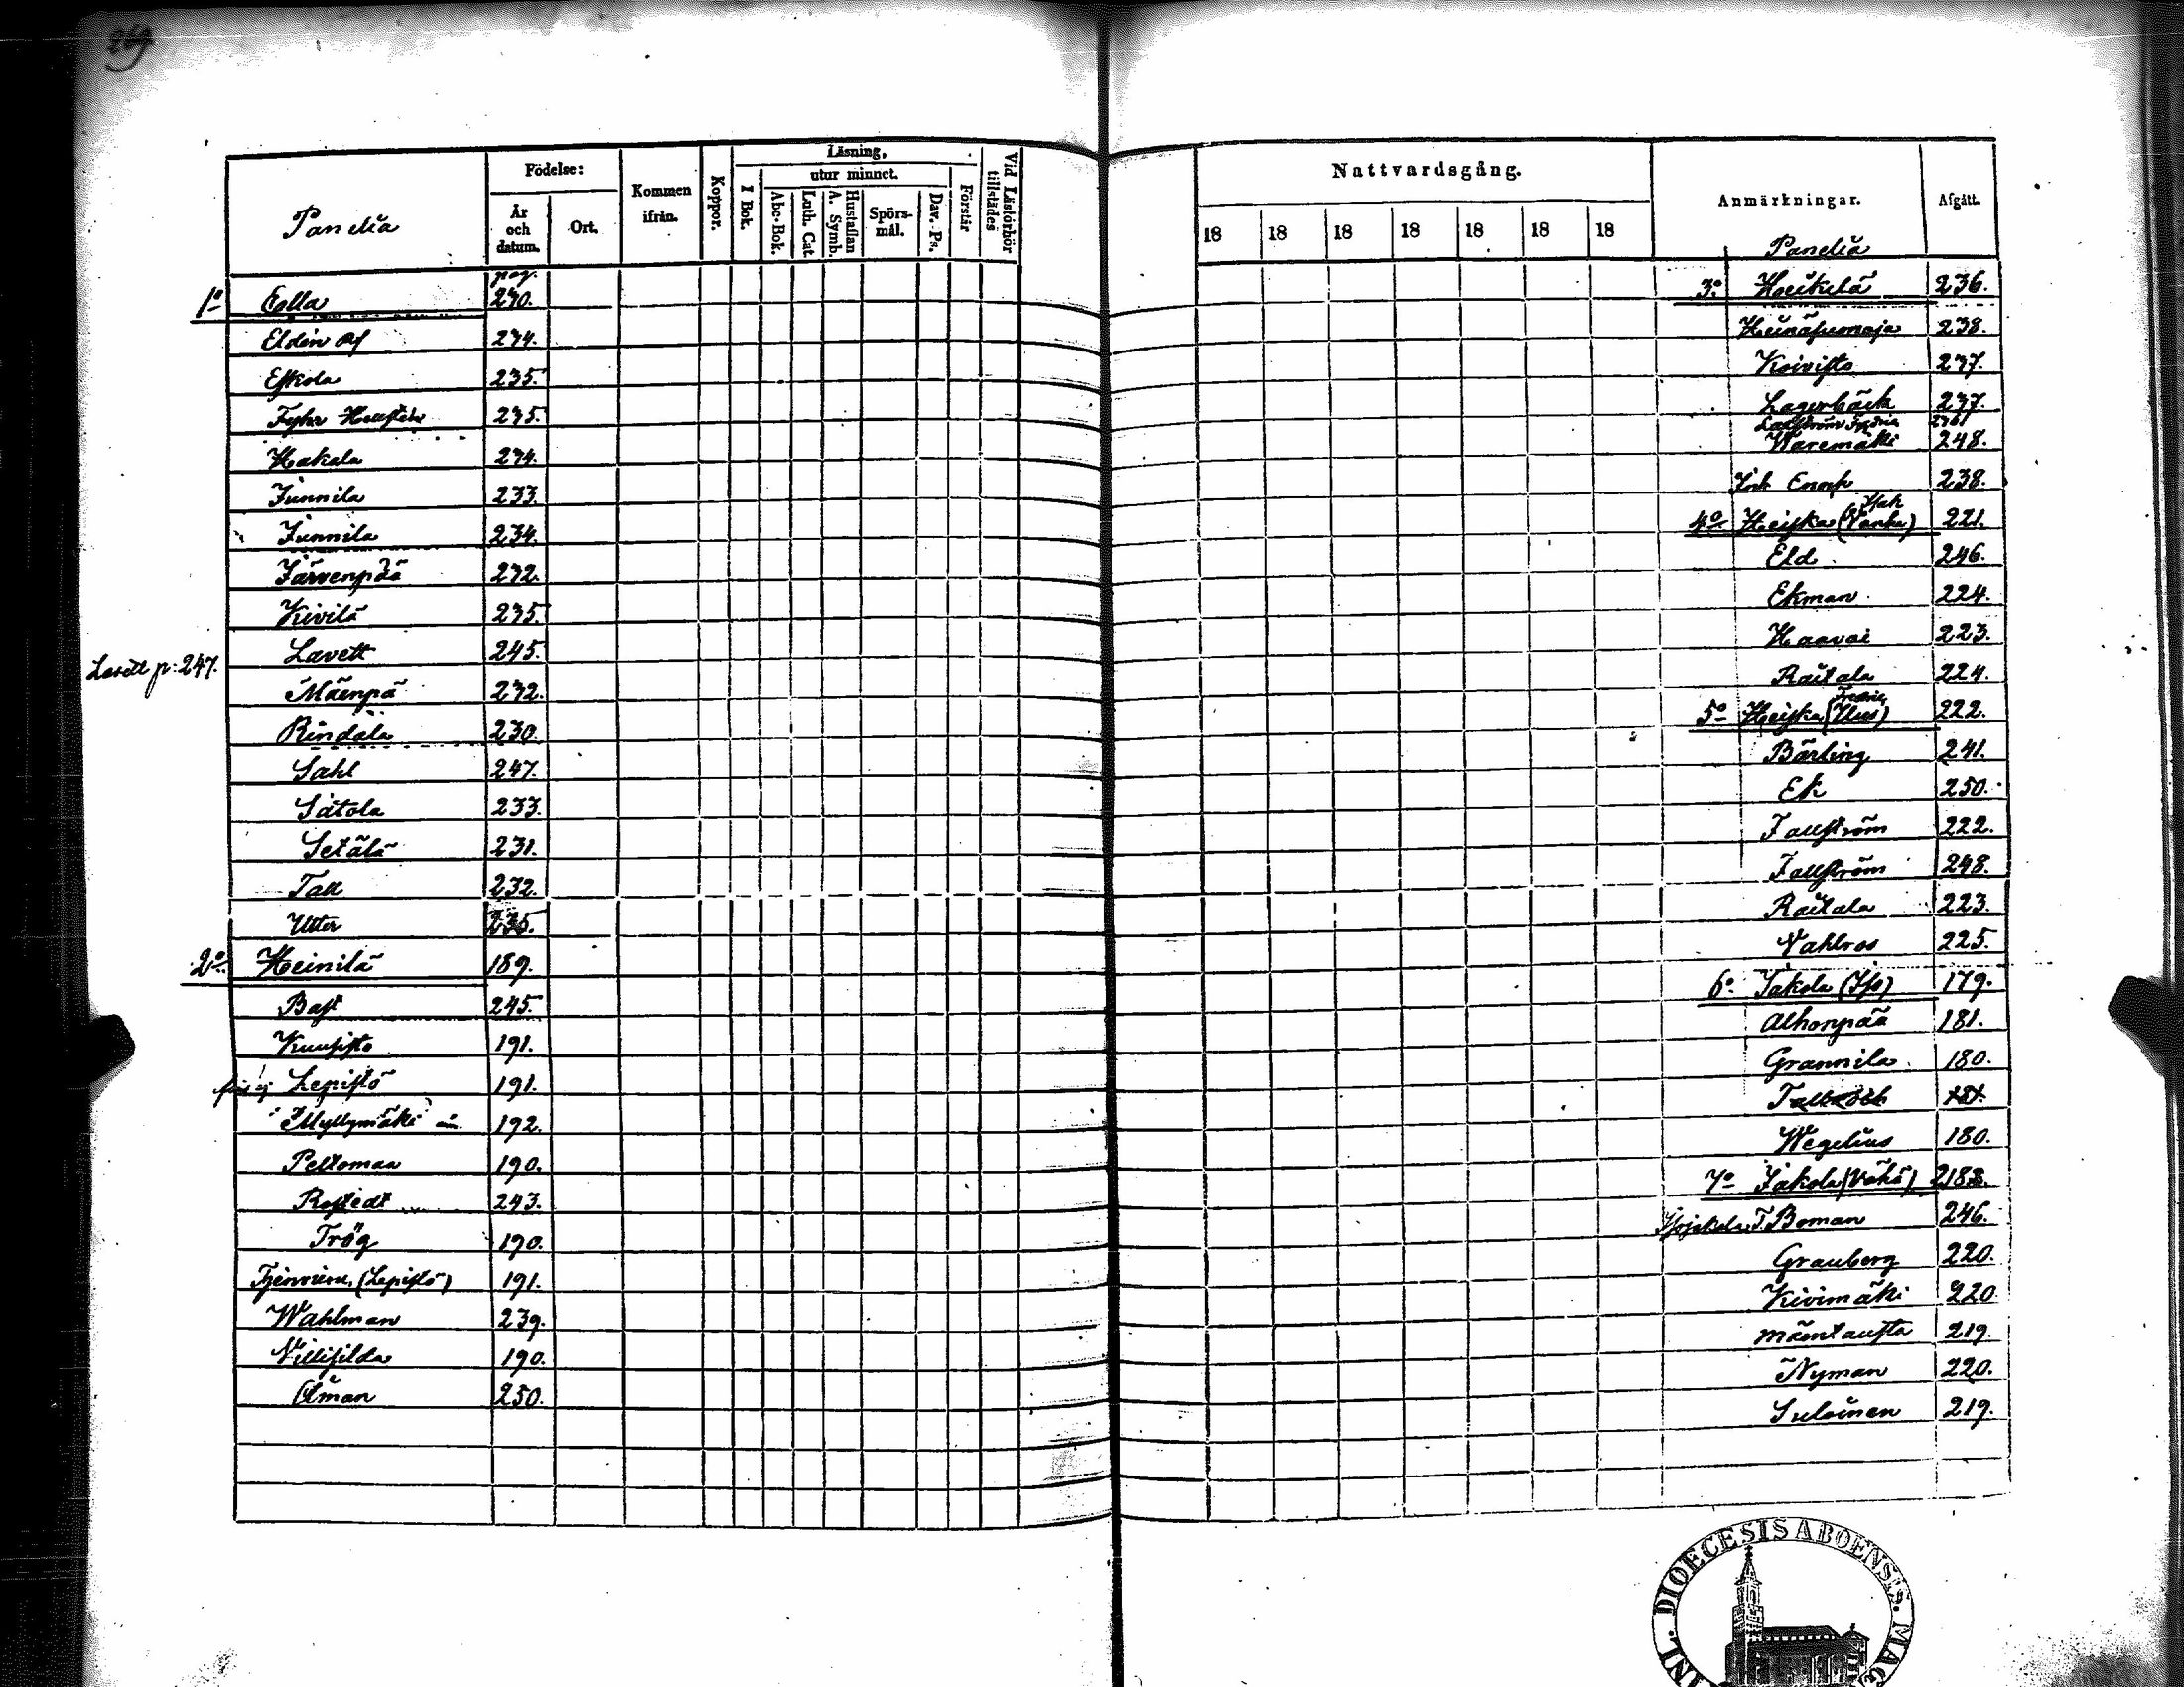 269
Panelia
Födelse:
År och datum.
Ort.
Kommen ifrån.
Koppor.
Läsning,
utur minnet.
I Bok.
Abc-Bok.
Luth. Cat.
Hustaflan A. Symb.
Spörs-mål.
Dav. Ps.
Förstår
Vid Läsförhör tillstädes
pag.
1o Eolla 230.
Eldin 234.
Eskola 235.
235.
Hakala 234.
Junnila 233.
Junnila 234.
Järvenpää 232.
Kivilä 235.
Lavett 245.
Lavett p: 247.
Mäenpä 232.
Rindala 230.
Sahl 247.
Sätola 233.
Setälä 231.
Tall 232.
Utter 235.
2o Heinilä 189.
Bast 245.
Kuusisto 191.
Lepistö 191.
Myllymäki 192.
Peltomaa 190.
Rostedt 243.
Trög 190.
(Lepistö) 191.
Wahlman 239.
Villisilda 190.
Öman 250.
Nattvardsgång.
18 18 18 18 18 18 18
Anmärkningar.
Afgått.
Panelia
3o Heikelä 236.
238.
Koivisto 237.
Lagerbäck 237.
Waremäki 248.
Enock 238.
4o Heiska (Vanha) 221.
Eld 246.
Ekman 224.
Haavoi 223.
Raitala 224.
5o Heiska (Uus) 222.
Bärling 241.
Ek 250.
Fallström 222.
Fallström 248.
Raitala 223.
Vahlros 225.
6o Jakola (Iso) 179.
Alhonpää 181.
Grannila 180.
181.
Wegelius 180.
7o Jakola (Vähä) 218.
Boman 246.
Grauberg 220.
Kivimäki 220
Mäentausta 219.
Nyman 220.
Suloinen 219.
DIOECESIS ABOENSIS. MAG